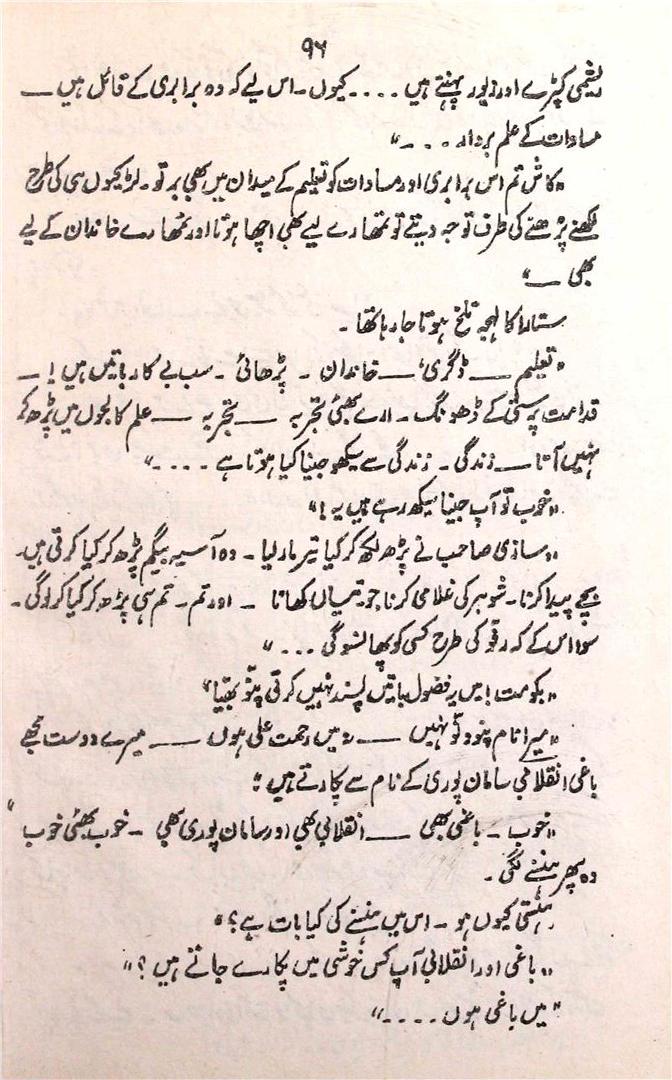 ۹۶
ریشمی کپڑے اور زیور پہنتے ہیں .... کیوں۔ اس لیے کہ وہ برابری کے قائل ہیں —
مساوات کے علم بردار ...۔"
"کاش تم اس برابری اور مساوات کو تعلیم کے میدان میں بھی برتو۔ لڑکیوں ہی کی طرح
لکھنے پڑھنے کی طرف توجہ دیتے تو تمھارے لیے بھی اچھا ہوتا اور تمھارے خاندان کے لیے
بھی —"
ستارا کا لہجہ تلخ ہوتا جا رہا تھا۔
"تعلیم — ڈگری — خاندان ۔ پڑھائی ۔ سب بے کار باتیں ہیں! —
قدامت پرستی کے ڈھونگ ۔ ارے بھئی تجربہ — تجربہ — علم کالجوں میں پڑھ کے
نہیں آتا — زندگی ۔ زندگی سے سیکھو جینا کیا ہوتا ہے ....۔"
"خوب تو آپ جینا سیکھ رہے ہیں یہ!"
"ساذی صاحب نے پڑھ لکھ کر کیا تیر مار لیا ۔ وہ آسیہ بیگم پڑھ کر کیا کرتی ہیں۔
بچے پیدا کرنا۔ شوہر کی غلامی کرنا جوتیاں کھانا ۔ اور تم ۔ تم ہی پڑھ کر کیا کر لوگی ۔
سوا اس کے کہ رفو کی طرح کسی کو پھانسوگی ..."
"بکو مت! میں یہ فضول باتیں پسند نہیں کرتی پنّو بھیّا"
"میرا نام پنّو ونّو نہیں — میں رحمت علی ہوں — میرے دوست مجھے
باغی انقلابی سامان پوری کے نام سے پکارتے ہیں"
"خوب ۔ باغی بھی — انقلابی بھی اور سامان پوری بھی ۔ خوب بھئی خوب"
وہ پھر ہنسنے لگی۔
"ہنستی کیوں ہو ۔ اس میں ہنسنے کی کیا بات ہے؟"
"باغی اور انقلابی آپ کس خوشی میں پکارے جاتے ہیں؟"
"میں باغی ہوں ....۔"